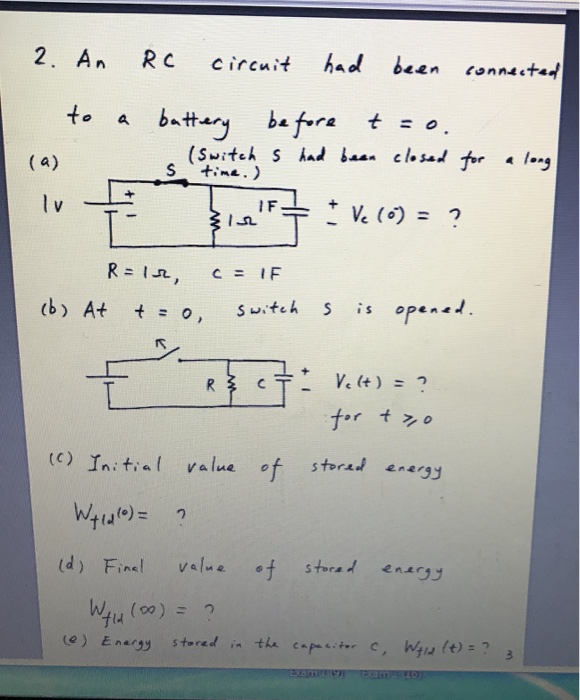 2. An RC circuit had been connected
to a battery before t = 0.
(a) (Switch S had been closed for a long
S time.)
+
1V - 1Ω 1F + - Vc(0⁻) = ?
R = 1Ω, C = 1F
(b) At t = 0, switch S is opened.
R C + - Vc(t) = ?
for t ≥ 0
(c) Initial value of stored energy
Wfld(0) = ?
(d) Final value of stored energy
Wfld(∞) = ?
(e) Energy stored in the capacitor C, Wfld(t) = ? 3